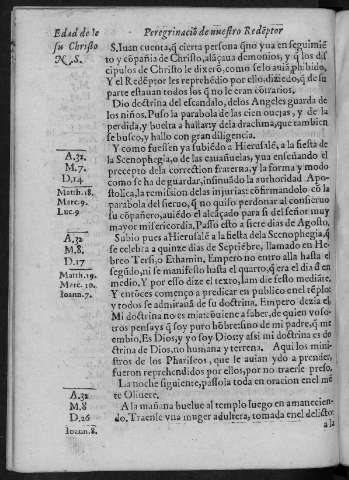 Edad de Ie
su Christo
N. S.
Peregrinaciõ de nuestro Redẽptor
S. Iuan cuenta, q̃ cierta persona qno yua en seguimiẽ
to y cõpañia de Christo, alãçaua demonios, y q̃ los dis
cipulos de Christo le dixerõ, como se lo auiã phibido,
Y el Redẽptor les reprehẽdio por ello, diziẽdo, q̃ de su
parte estauan todos los q̃ no le eran cõtrarios.
Dio doctrina del escandalo, de los Angeles guarda de
los niños. Puso la parabola de las cien ouejas, y de la
perdida, y buelta a hallar y dela drachma, que tambien
se busco, y hallo con gran diligencia.
A. 32.
M. 7.
D. 14
Matth. 18.
Marc. 9.
Luc. 9
Y como fuessen ya subiẽdo a Hierusalẽ, a la fiesta de
la Scenophegia, o de las cauañuelas, yua enseñando el
precepto dela correction fraterna, y la forma y modo
como se ha de guardar, insinuãdo la authoridad Apo
stolica, la remission delas injurias: cõfirmandolo cõ la
parabola del sieruo, q̃ no quiso perdonar al consieruo
su cõpañero, auiẽdo el alcãçado para si del señor muy
mayor misericordia. Passo esto a siete dias de Agosto.
A. 32
M. 8.
D. 17
Matth. 19.
Marc. 10.
Ioann. 7.
Subio pues a Hierusalẽ a la fiesta dela Scenophegia, q̃
se celebra a quinze dias de Septiẽbre, llamado en He-
breo Tersi, o Ethamin. Empero no entro alla hasta el
segũdo, ni se manifesto hasta el quarto, q̃ era el dia d en
medio. Y por esso dize el texto, Iam die festo mediãte.
Y entõces començo a predicar es publico enel tẽplo
y todos se admirauã de su doctrina. Empero dezia el.
Mi doctrina no es mia: cõuiene a saber, de quien voso-
tros pensays q̃ soy puro hõbre: sino de mi padre, q̃ me
embio, Es Dios, y yo soy Dios; y assi mi doctrina es do
ctrina de Dios, no humana y terrena. Aqui los mini-
stros de los Phariseos, que le auian ydo a prender,
fueron reprehendidos por ellos, por no traerse preso.
La noche siguiente, passola toda en oracion enel mõ
te Oliuere.
A. 32.
M. 8
D. 26
Ioann. 8.
A la mañana buelue al templo luego en amanecien-
do. Traenle vna muger adultera, tomada enel delicto:
a la